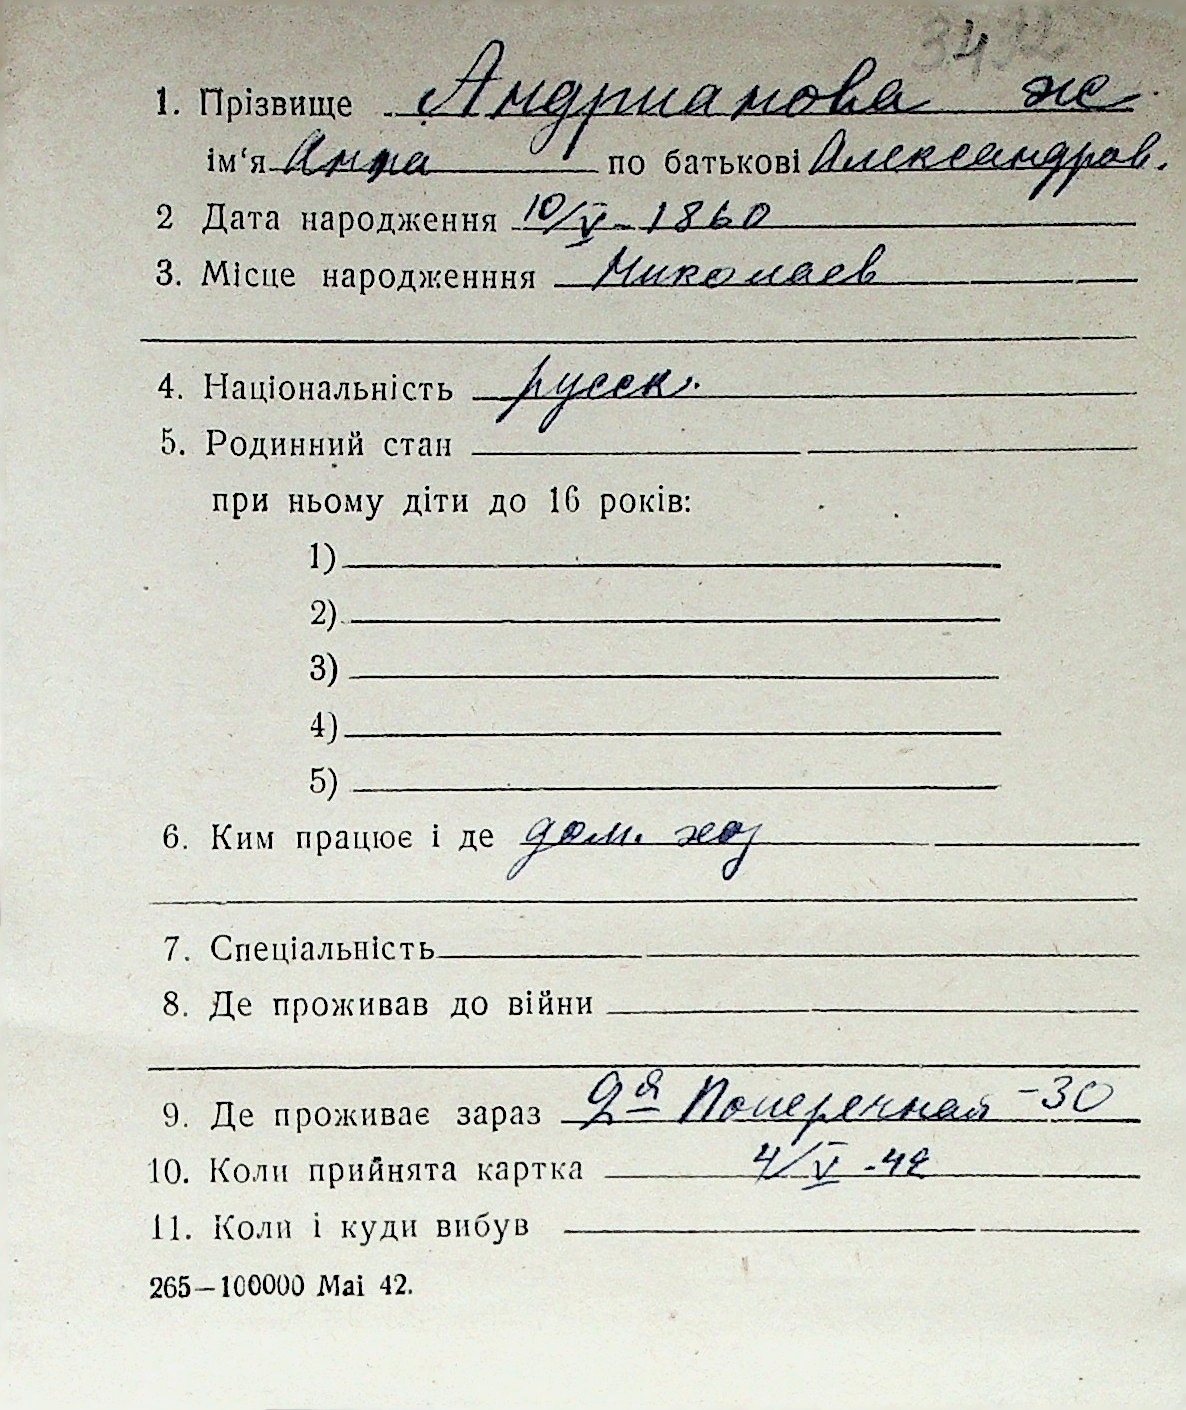 1. Прізвище Андрианова ж
ім‘я Анна по батькові Александров.
2 Дата народження 10/V-1860
3. Місце народженння Николаев
4. Національність русск.
5. Родинний стан
при ньому діти до 16 років:
1)
2)
3)
4)
5)
6. Ким працює і де дом. хоз
7. Спеціальність
8. Де проживав до війни
9. Де проживає зараз 2я Поперечная -30
10. Коли прийнята картка 4/V-42
11. Коли і куди вибув
265—100000 Маі 42.